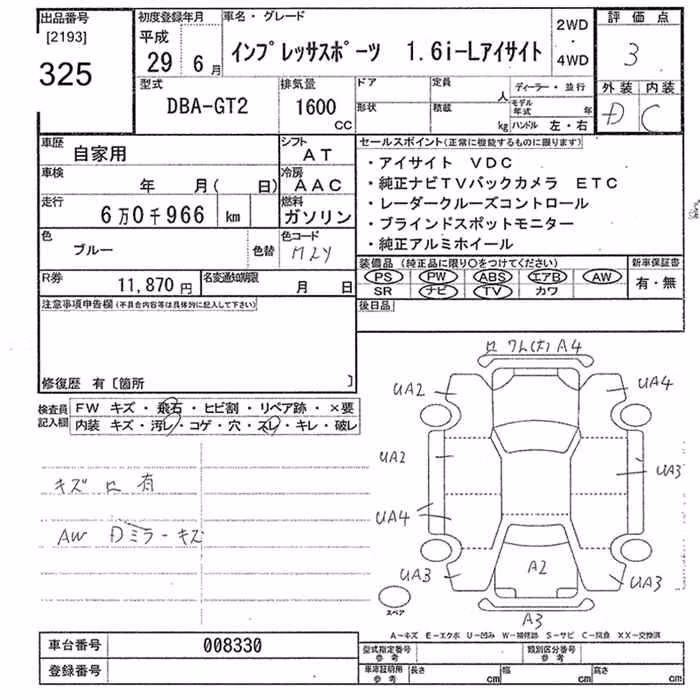 出品番号
[2193]
325
初度登録年月
平成
29年6月
車名・グレード
インプレッサスポーツ 1.6i-Lアイサイト
2WD
・
4WD
評価点
3
外装 内装
D C
型式
DBA-GT2
排気量
1600
CC
ドア
形状
定員
人
積載
kg
ディーラー・並行
モデル年式 年
ハンドル 左・右
車歴
自家用
シフト
AT
車検
年 月( 日)
冷房
AAC
走行
6万0千966 km
燃料
ガソリン
色
ブルー
色替
色コード
M2Y
R券
11,870円
名変通知期限
月 日
セールスポイント(正常に機能するものに限ります)
・アイサイト VDC
・純正ナビTVバックカメラ ETC
・レーダークルーズコントロール
・ブラインドスポットモニター
・純正アルミホイール
装備品(純正品に限り○をつけてください)
PS PW ABS エアB AW
SR ナビ TV カワ
新車保証書
有・無
後日品
注意事項申告欄(不具合内容等は具体的に記入して下さい)
修復歴 有〔箇所 〕
検査員
記入欄
FW キズ・飛石・ヒビ割・リペア跡・×要
内装 キズ・汚レ・コゲ・穴・スレ・キレ・破レ
キズ 有
AW Dミラーキズ
A4
UA2
UA4
UA2
UA3
UA4
UA3
A2
UA3
A3
スペア
A-キズ E-エクボ U-凹み W-補修跡 S-サビ C-腐食 XX-交換済
車台番号
008330
登録番号
型式指定番号
参考
類別区分番号
参考
車庫証明用
参考
長さ
cm
幅
cm
高さ
cm